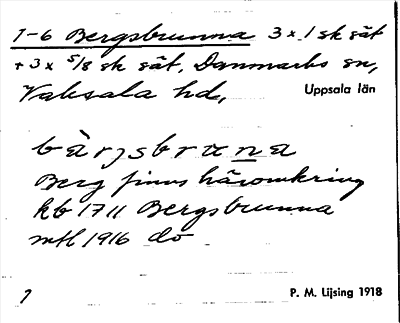 1-6 Bergsbrunna 3 x 1 sk sät
+ 3 x 5/8 sk sät, Danmarks sn,
Vaksala hd,
Uppsala län
bàrjsbruna
Berg finns häromkring
kb 1711 Bergsbrunna
mtl 1916 do
P. M. Lijsing 1918